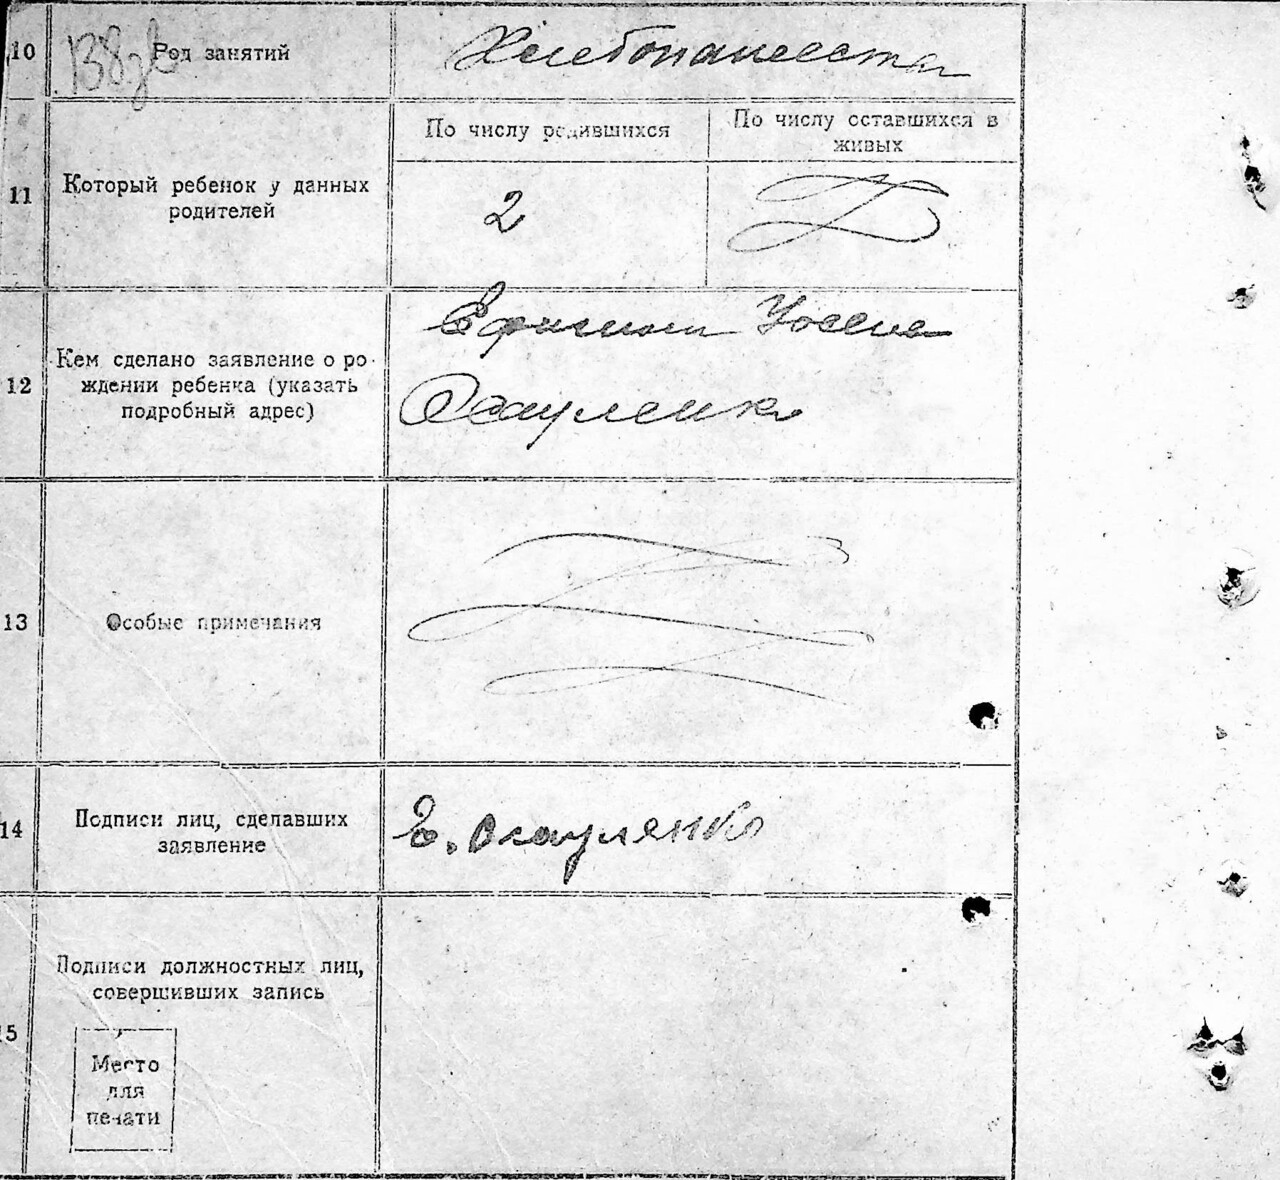 10
Род занятий
138
Хлебопашества
11
Который ребенок у данных
родителей
По числу родившихся
По числу оставшихся в
живых
2
12
Кем сделано заявление о ро-
ждении ребенка (указать
подробный адрес)
Осауленко
13
Особые примечания
14
Подписи лиц, сделавших
заявление
Е. Осауленко
15
Подписи должностных лиц,
совершивших запись
Место
для
печати